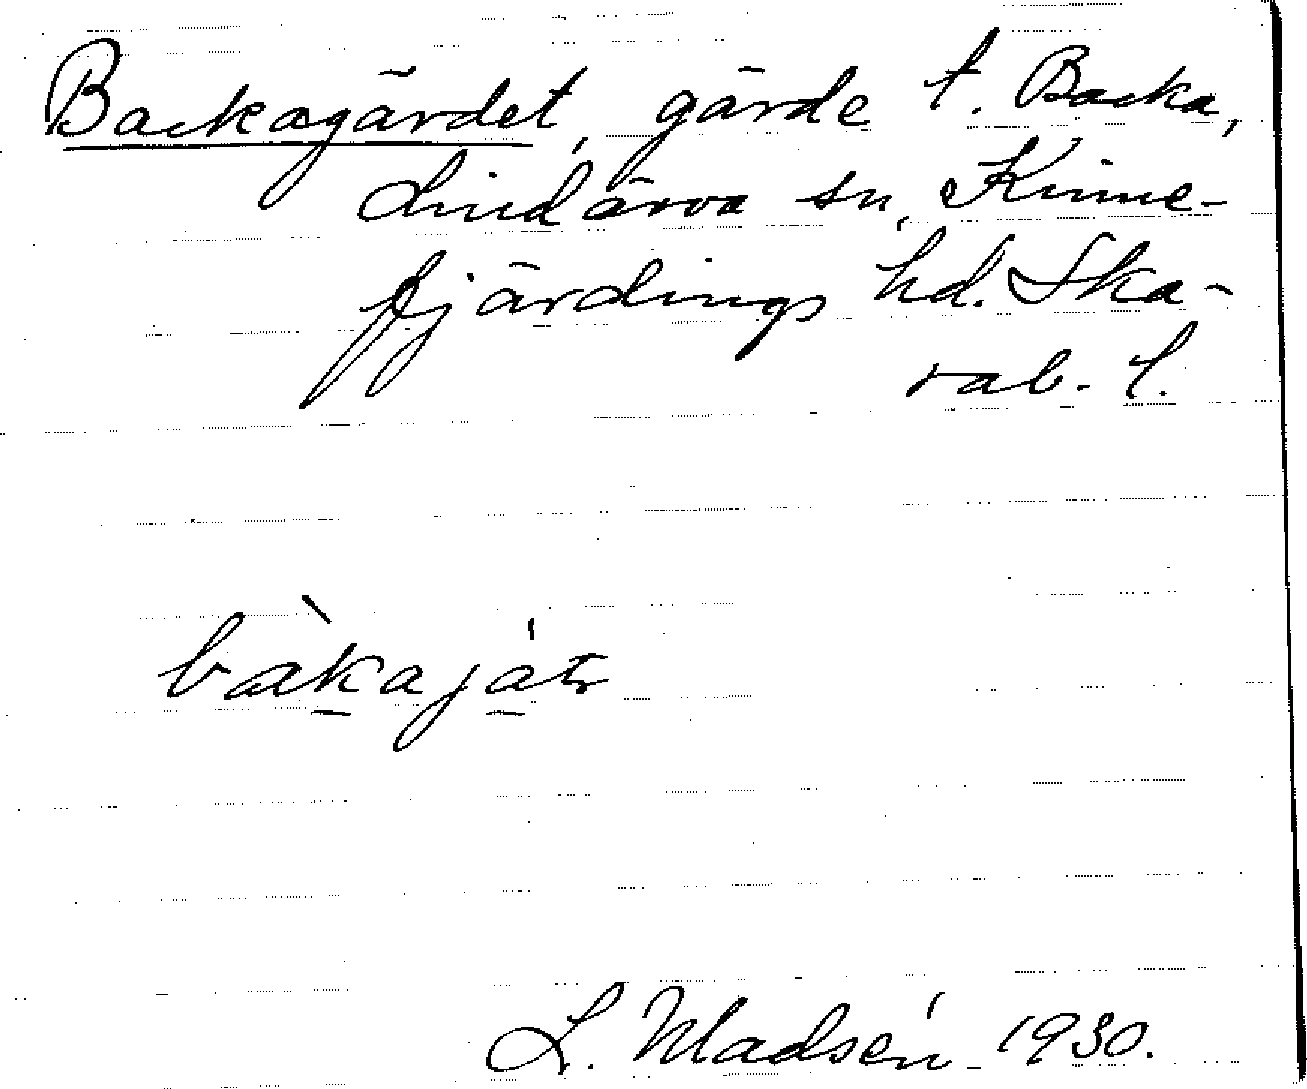 Backagärdet, gärde t. Backa,
Lindärva sn, Kinne-
fjärdings hd. Ska-
rab. l.
bàkaját
L. Madsén 1930.